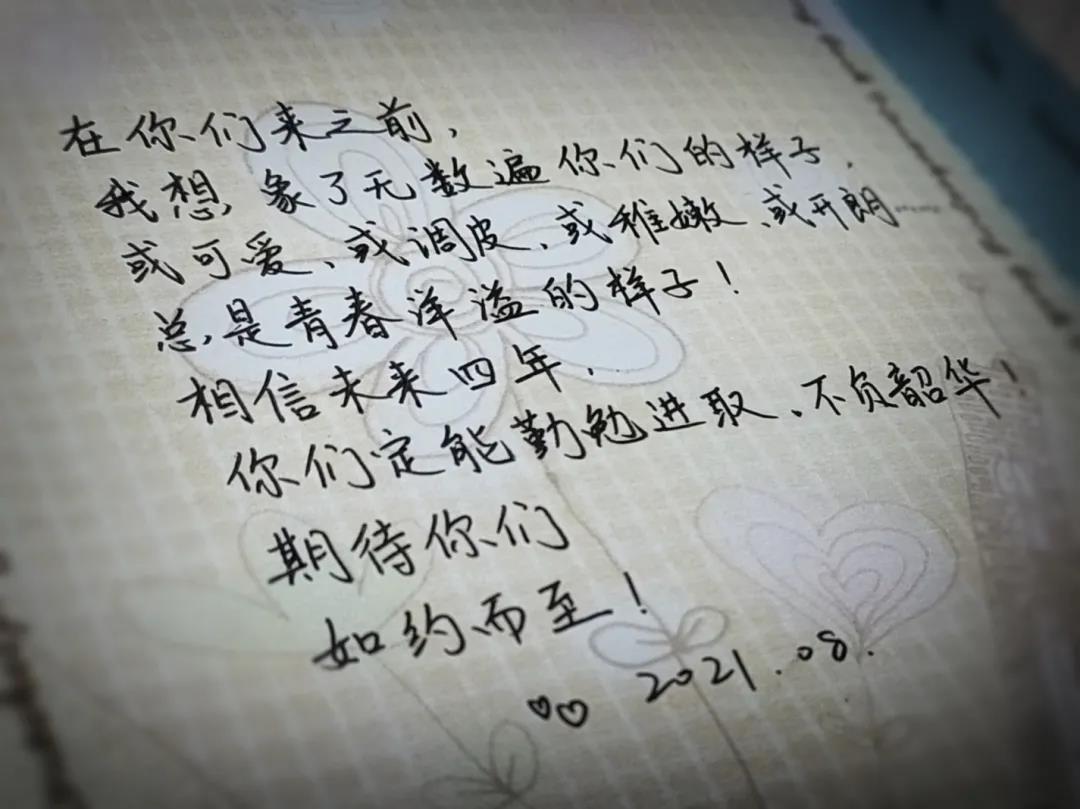 在你们来之前，
我想象了无数遍你们的样子，
或可爱、或调皮、或稚嫩、或开朗……
总是青春洋溢的样子！
相信未来四年，
你们定能勤勉进取、不负韶华！
期待你们
如约而至！
♡♡ 2021.08.